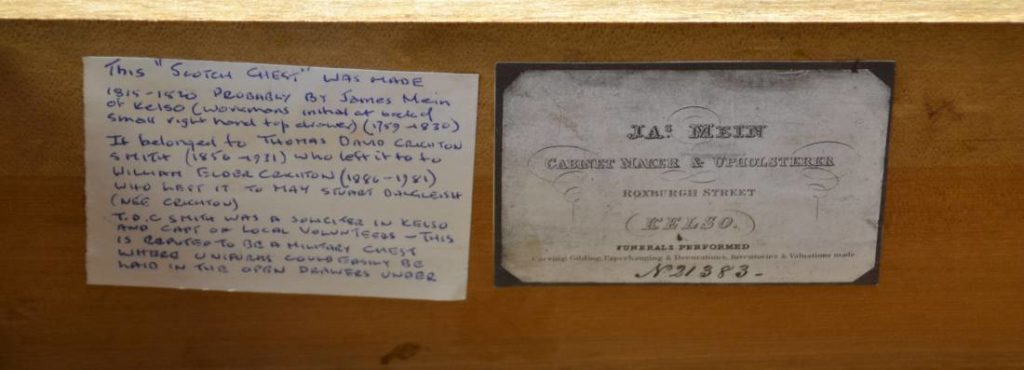 This "SCOTCH CHEST" WAS MADE
1815-1820 PROBABLY BY James Mein
of Kelso (Workmans initial at back of
small right hand top drawer) (1759-1830)
It belonged to THOMAS DAVID CRICHTON
SMITH (1856-1931) who left it to
WILLIAM ELDER CRICHTON (1886-1981)
WHO LEFT IT TO MAY STUART DALGLEISH
(NEE CRICHTON)
T.D.C SMITH WAS A SOLICITER IN KELSO
AND CAPT OF LOCAL VOLUNTEERS - THIS
IS REPUTED TO BE A MILITARY CHEST
WHERE UNIFORMS COULD EASILY BE
LAID IN THE OPEN DRAWERS UNDER
JAs MEIN
CABINET MAKER & UPHOLSTERER
ROXBURGH STREET
KELSO.
FUNERALS PERFORMED
Carving, Gilding, Paperhanging & Decorations, Inventories & Valuations made
No 21383-